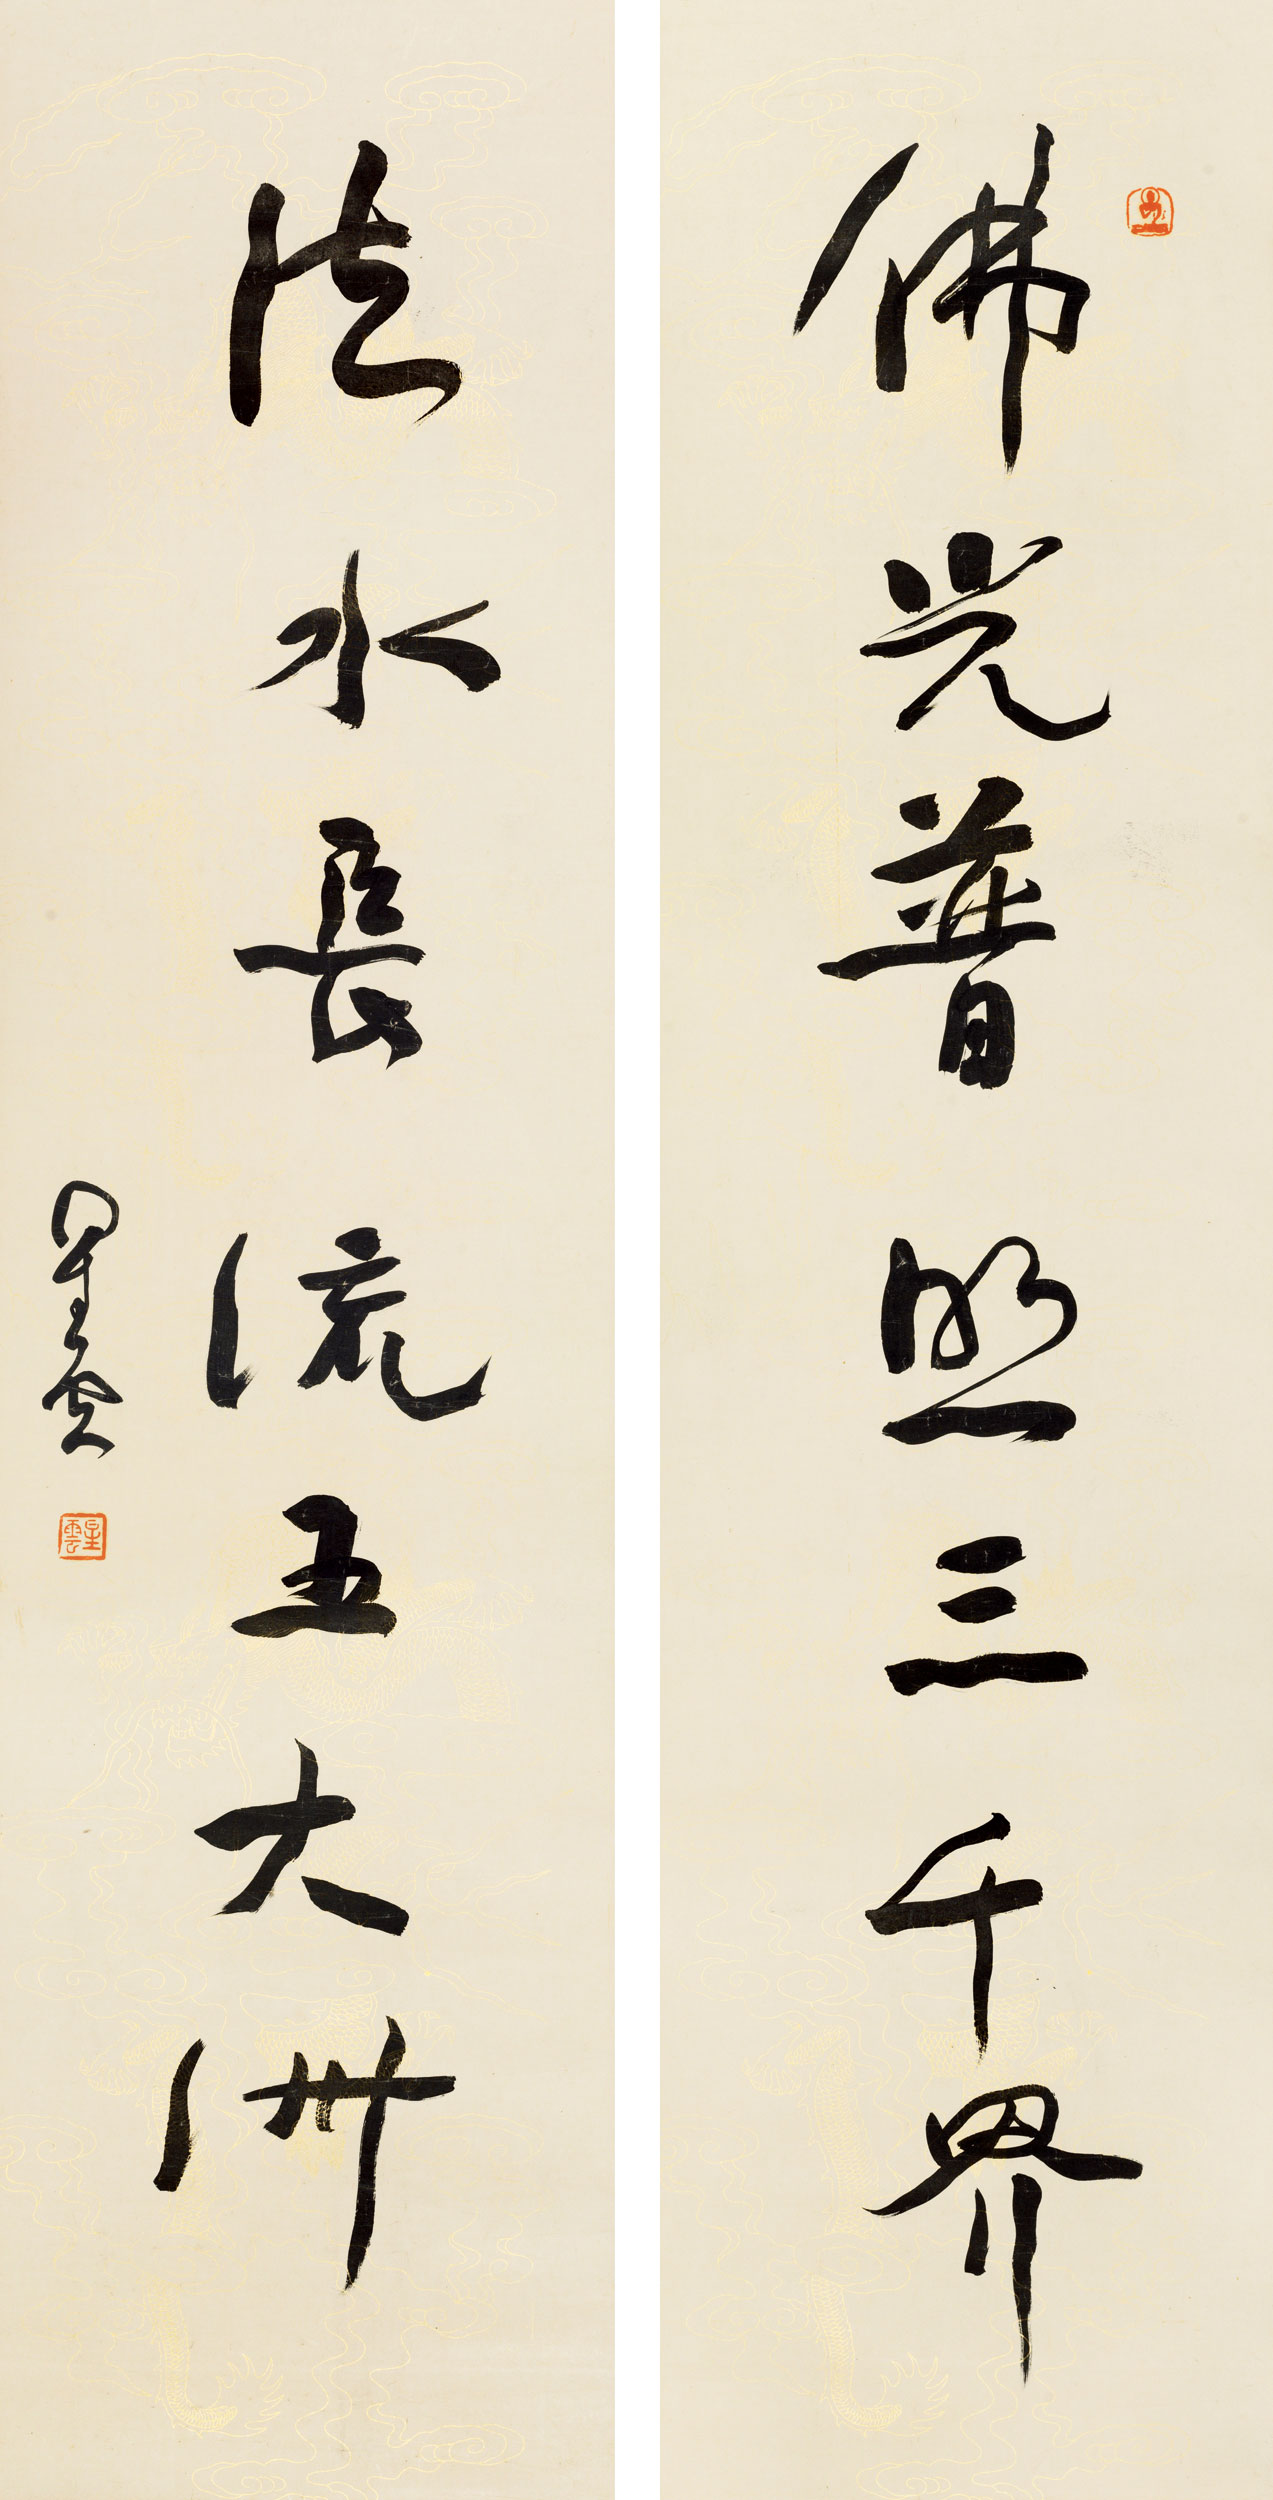 佛光普照三千界
法水長流五大洲
星雲
星雲